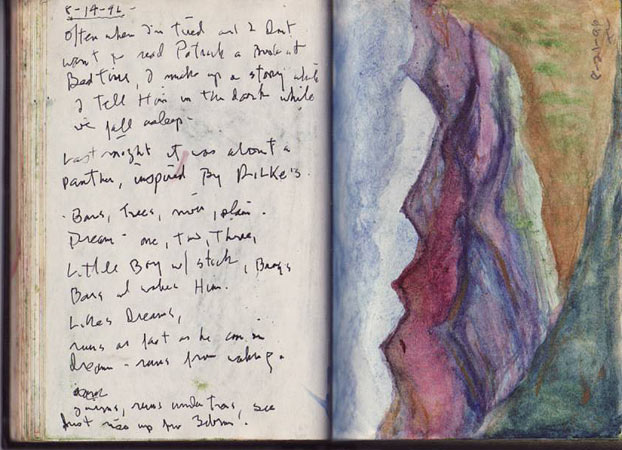 8-14-96 -
Often when I'm tired and I don't
want to read Patrick a book at
Bedtime, I make up a story which
I tell Him in the dark while
we fall asleep.
Last night it was about a
panther, inspired By Rilke's.
- Bars, Trees, river, plain.
Dream - one, Two, Three,
Little Boy w/ stick, Bangs
Bars and wakes Him.
Likes Dreams,
runs as fast as he can in
dream - runs from waking.
runs under trees, see
dust rise up